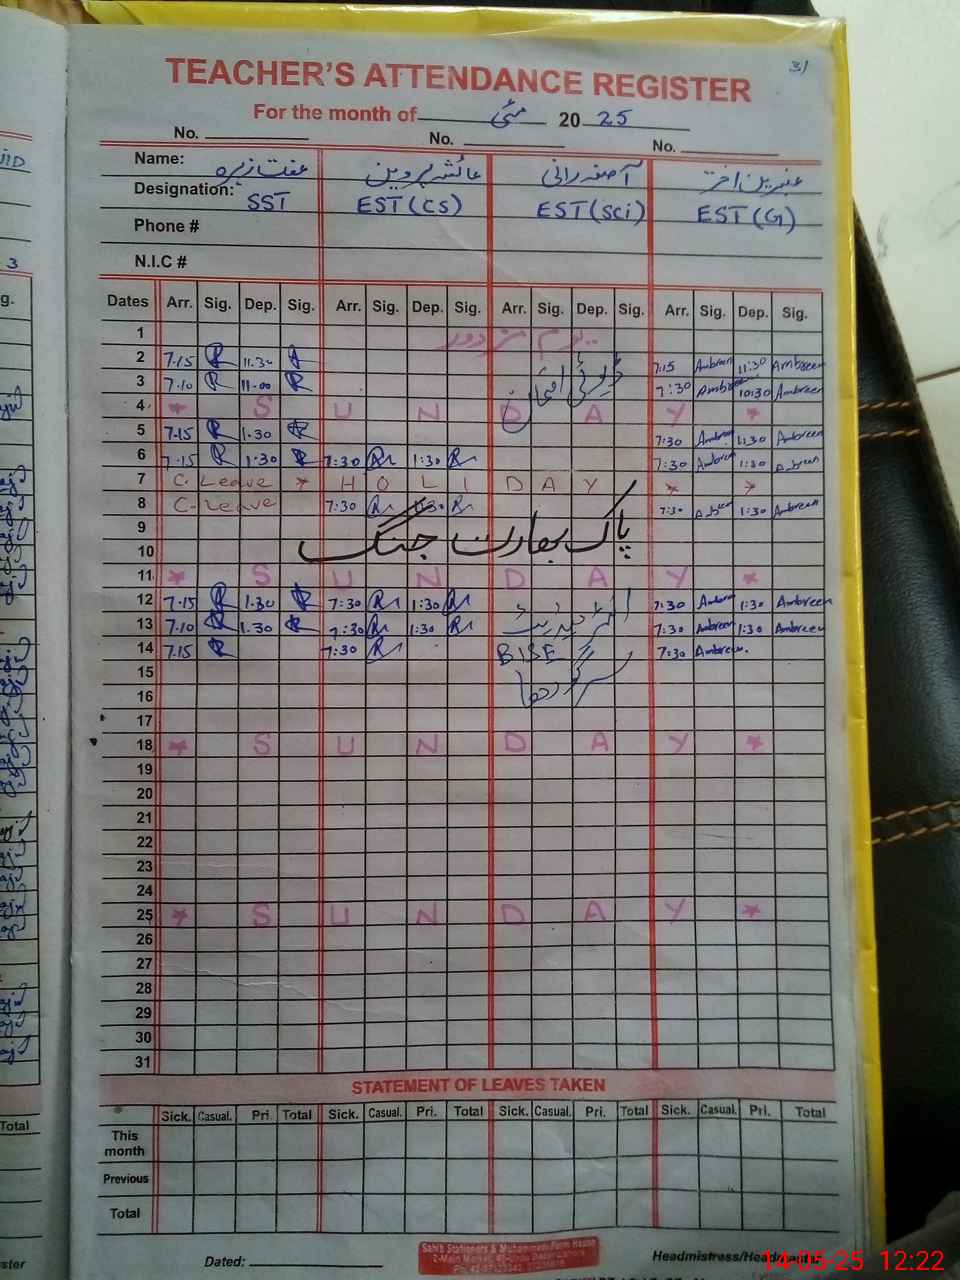 31
TEACHER'S ATTENDANCE REGISTER
For the month of مئی 2025
No. No. No.
Name: عفت زہرہ عائشہ پروین آصفہ رانی عنبرین اختر
Designation: SST EST (CS) EST (Sci) EST (G)
Phone #
N.I.C #
Dates Arr. Sig. Dep. Sig. Arr. Sig. Dep. Sig. Arr. Sig. Dep. Sig. Arr. Sig. Dep. Sig.
1 یوم مزدور
2 7.15 11.30 7.15 Ambreen 11:30 Ambreen
3 7.10 11.00 ڈیوٹی امتحان 7:30 Ambreen 10:30 Ambreen
4 * S U N D A Y *
5 7.15 1.30 7:30 Ambreen 11:30 Ambreen
6 7.15 1.30 7:30 1:30 7:30 Ambreen 1:30 Ambreen
7 C. Leave * H O L I D A Y * *
8 C. Leave 7:30 1:30 7:30 Ambreen 1:30 Ambreen
9
10 پاک بھارت جنگ
11 * S U N D A Y *
12 7.15 1.30 7:30 1:30 7:30 Ambreen 1:30 Ambreen
13 7.10 1.30 7:30 1:30 7:30 Ambreen 1:30 Ambreen
14 7.15 7:30 BISE 7:30 Ambreen.
15 سرگودھا
16
17
18 * S U N D A Y *
19
20
21
22
23
24
25 * S U N D A Y *
26
27
28
29
30
31
STATEMENT OF LEAVES TAKEN
Sick. Casual. Pri. Total Sick. Casual. Pri. Total Sick. Casual. Pri. Total Sick. Casual. Pri. Total
This month
Previous
Total
Dated: Headmistress/Headmaster
Sahib Stationers & Muhammadi Form House
14-05-25 12:22